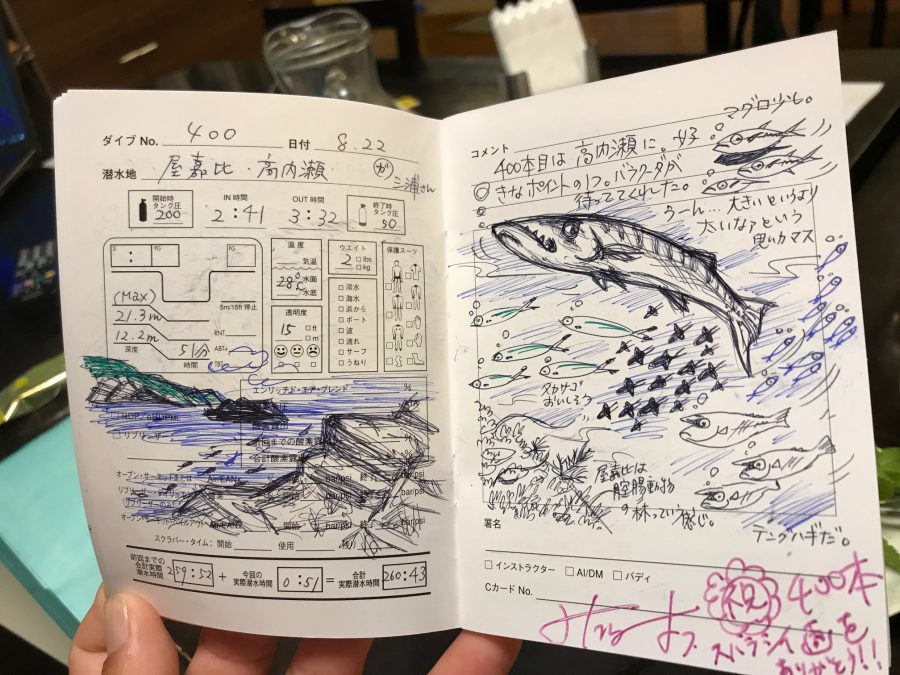 ダイブ No. 400 日付 8.22
潜水地 屋嘉比・高内瀬 ガ 三浦さん
開始時
タンク圧
200
IN 時間
2:41
OUT 時間
3:32
終了時
タンク圧
50
SI
PG
PG
(Max)
21.3m
12.2m
深度
51分
時間
5m/15ft 停止
RNT
ABT+
TBT
温度
気温
水面
28℃
水底
透明度
15 □ft
□m
ウエイト
2 □lbs
□kg
□淡水
□海水
□浜から
□ボート
□波
□流れ
□サーフ
□うねり
保護スーツ
エンリッチド・エア・ブレンド %
前回までの酸素
合計酸素
オープン・サーキットまたは
bar/psi
bar/psi
開始
bar/psi
bar/psi
スクラバー・タイム：開始 使用
前回までの
合計実際
潜水時間
259:52
+
今回の
実際潜水時間
0:51
=
合計
実際潜水時間
260:43
コメント
マグロ少し。
400本目は高内瀬に。好
きなポイントの1つ。バラクーダが
待っててくれた。
うーん…大きいというより
太いなァという
思いカマス
タカサゴ
おいしそう
屋嘉比は
腔腸動物
の林っていう感じ。
テングハギだ。
署名
□ インストラクター □ AI/DM □ バディ
Cカード No.
祝 400本
スバラシイ画を
ありがとう!!